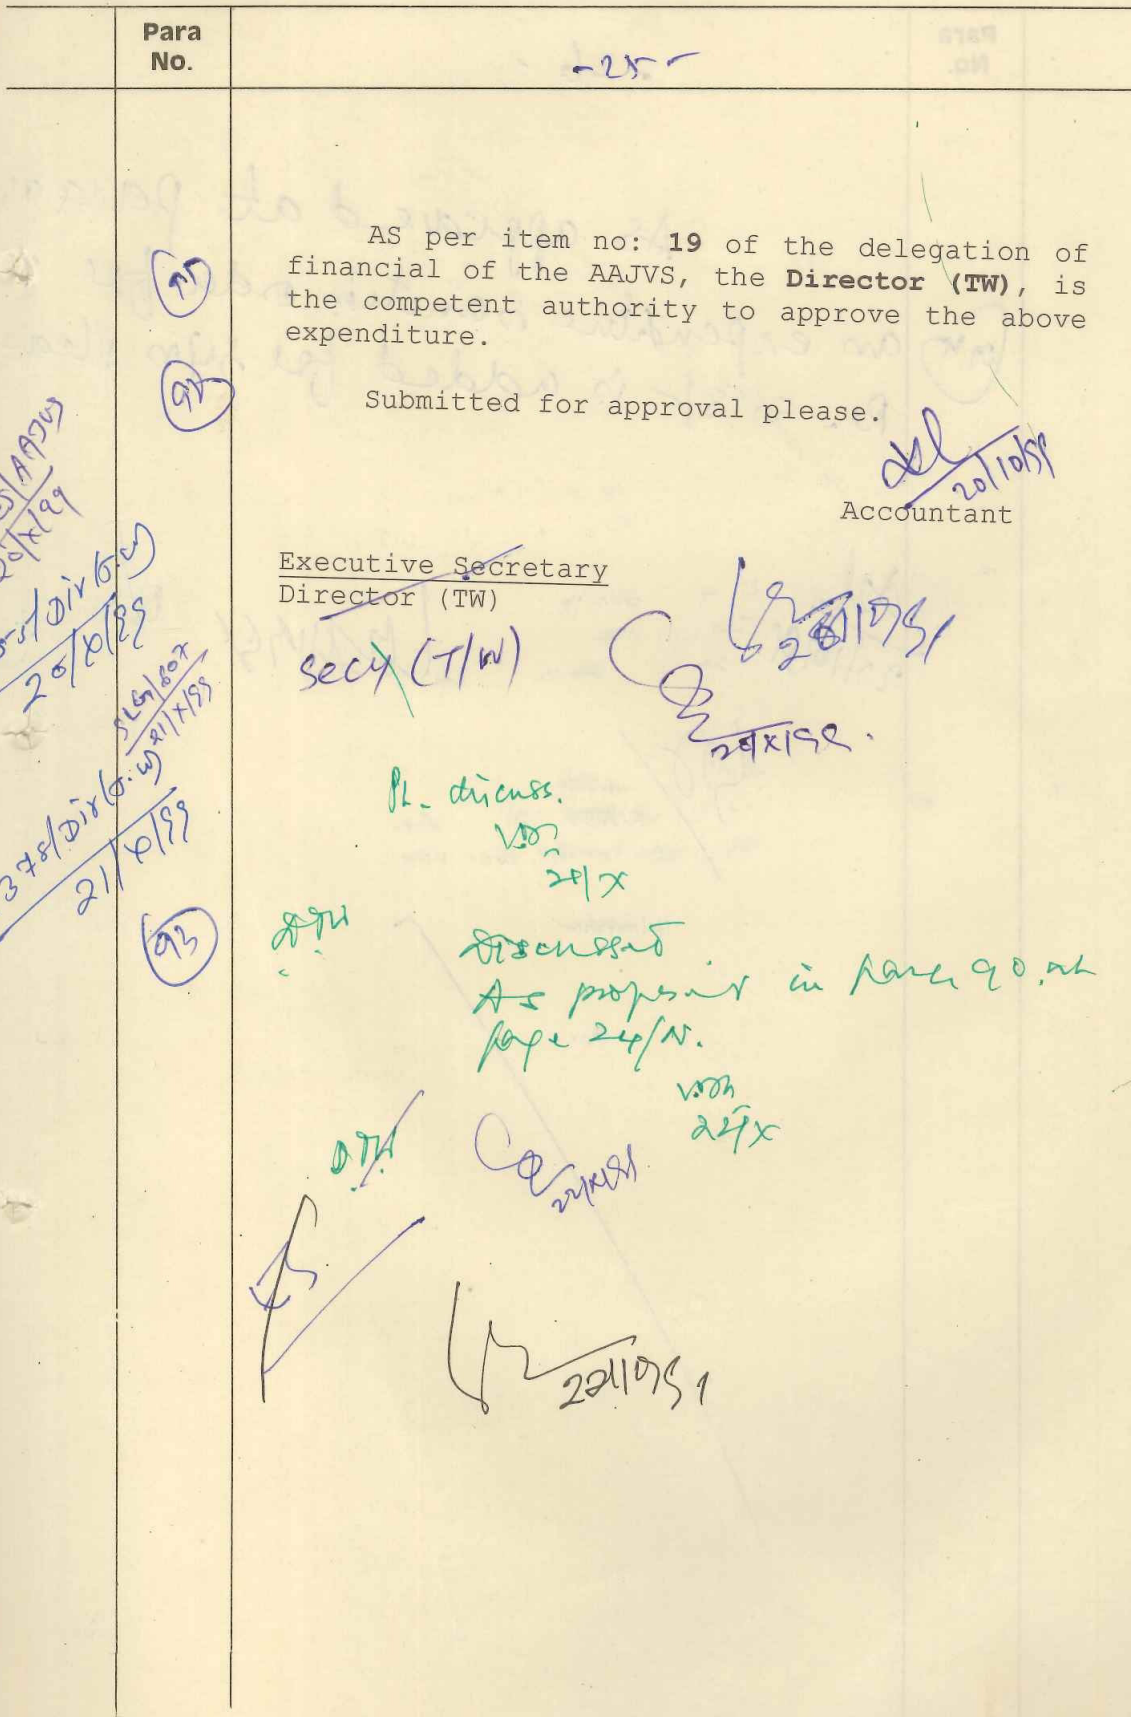 Para
No.
- 25 -
91
AS per item no: 19 of the delegation of
financial of the AAJVS, the Director (TW), is
the competent authority to approve the above
expenditure.
92
Submitted for approval please.
20/10/99
Accountant
ES/AAJVS
20/X/99
Executive Secretary
Director (TW)
Secy (T/W)
/Dir(T.W)
20/X/99
21/X/99
378/Dir(T.W)
21/X/99
Pl. discuss.
93
DTW
Discussed.
As proposed in para 90 at
page 24/N.
22/X
DTW
22/X/99
ES
22/10/99